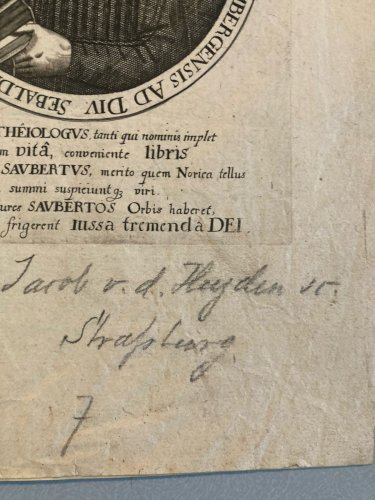 MBERGENSIS AD DIV SEBALD
THEIOLOGVS, tanti qui nominis implet
m vitâ, conveniente libris
SAVBERTVS, merito quem Norica tellus
summi suspiciunt q3 viri.
ures SAVBERTOS Orbis haberet,
frigerent Iussa tremenda DEI.
Jacob v. d. Heyden sc.
Straßburg.
7